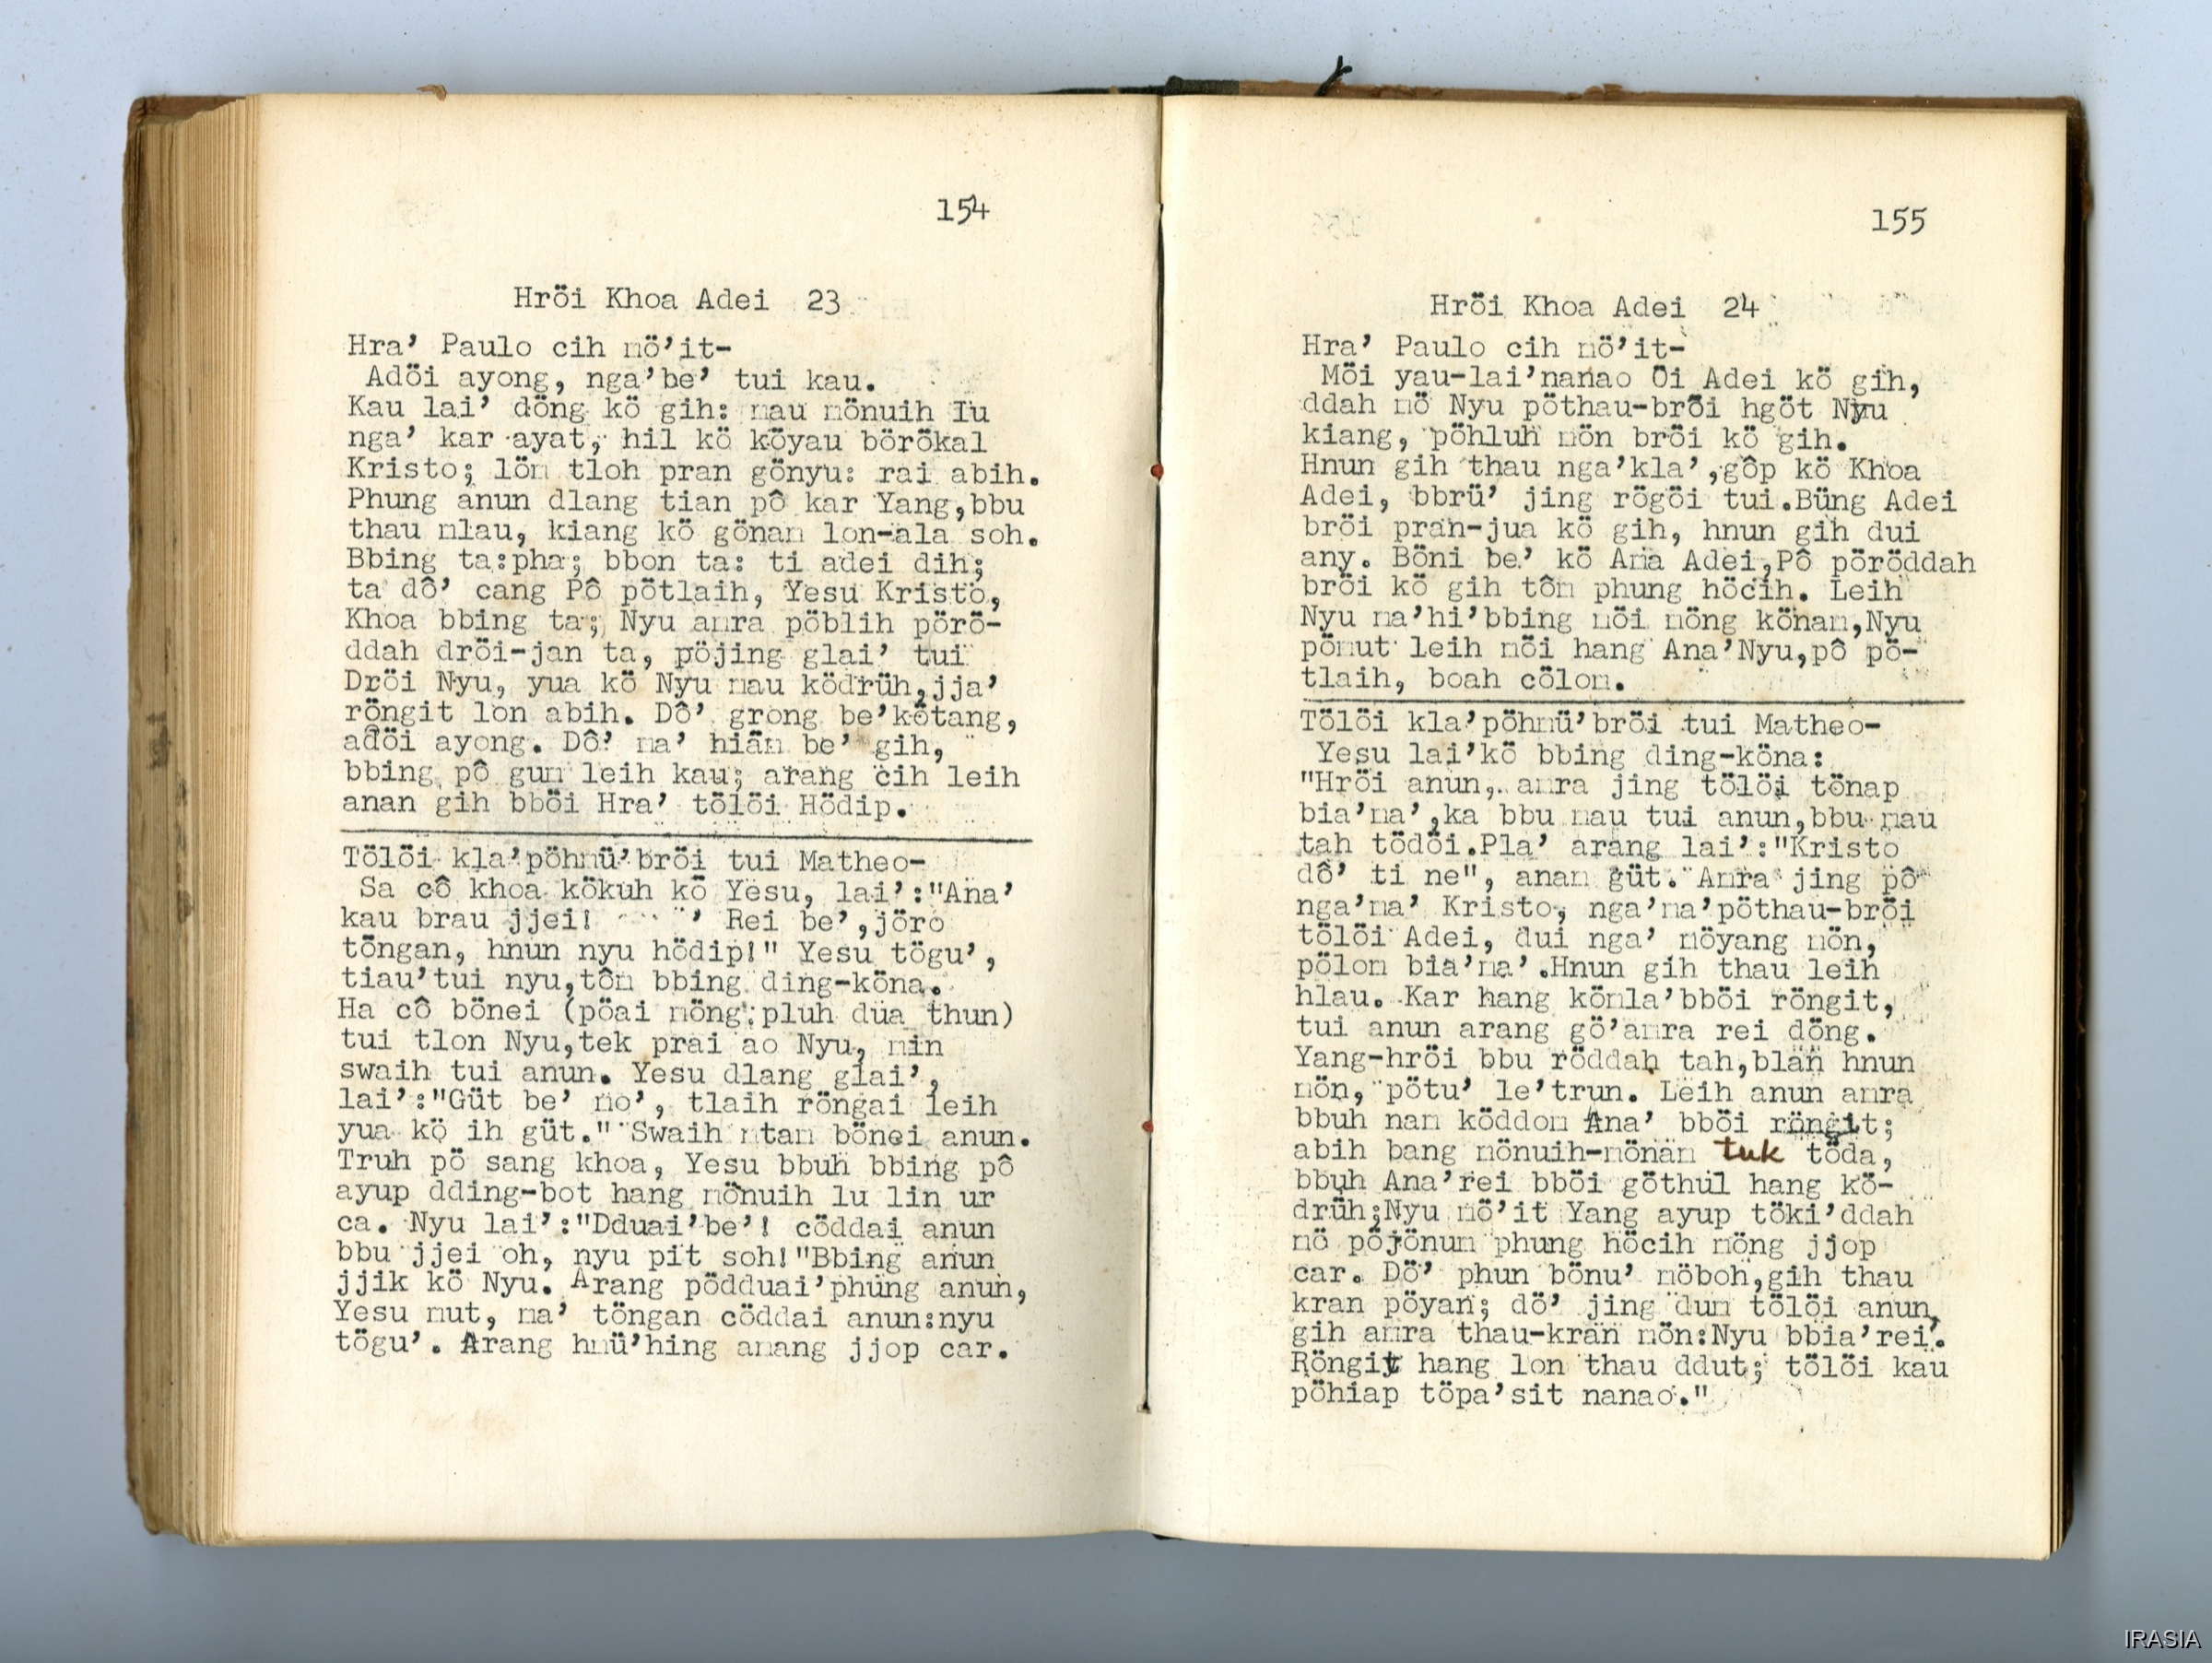 154
Hröi Khoa Adei 23
Hra’ Paulo cih mö’it-
Adöi ayong, nga’be’ tui kau.
Kau lai’ döng kö gih: mau mönuih Iu
nga’ kar ayat, hil kö köyau börökal
Kristo; löm tloh pran gönyu: rai abih.
Phung anun dlang tian pô kar Yang,bbu
thau mlau, kiang kö gönam lon-ala soh.
Bbing ta:pha; bbon ta: ti adei dih;
ta dô’ cang Pô pötlaih, Yesu Kristo,
Khoa bbing ta; Nyu amra pöblih pörö-
ddah dröi-jan ta, pöjing glai’ tui
Dröi Nyu, yua kö Nyu mau ködrüh,jja’
röngit lon abih. Dô’ grong be’kötang,
adöi ayong. Dô’ ma’ hiäm be’ gih,
bbing pô gum leih kau; arang cih leih
anan gih bböi Hra’ tölöi Hödip.
Tölöi kla’pöhmü’bröi tui Matheo-
Sa cô khoa kökuh kö Yesu, lai’:"Ana’
kau brau jjei! ’ Rei be’,jöro
töngan, hnun nyu hödip!" Yesu tögu’,
tiau’tui nyu,tôm bbing ding-köna.
Ha cô bönei (pöai möng:pluh dua thun)
tui tlon Nyu,tek prai ao Nyu, min
swaih tui anun. Yesu dlang glai’,
lai’:"Güt be’ mo’, tlaih röngai leih
yua kö ih güt." Swaih mtam bönei anun.
Truh pö sang khoa, Yesu bbuh bbing pô
ayup dding-bot hang mönuih lu lin ur
ca. Nyu lai’:"Dduai’be’! cöddai anun
bbu jjei oh, nyu pit soh!"Bbing anun
jjik kö Nyu. Arang pödduai’phung anun,
Yesu mut, ma’ töngan cöddai anun:nyu
tögu’. Arang hmü’hing anang jjop car.
155
Hröi Khoa Adei 24
Hra’ Paulo cih mö’it-
Möi yau-lai’nanao Öi Adei kö gih,
ddah mö Nyu pöthau-bröi hgöt Nyu
kiang, pöhluh mön bröi kö gih.
Hnun gih thau nga’kla’,gôp kö Khoa
Adei, bbrü’ jing rögöi tui.Büng Adei
bröi pran-jua kö gih, hnun gih dui
any. Böni be’ kö Ama Adei,Pô pöröddah
bröi kö gih tôm phung höcih. Leih
Nyu ma’hi’bbing möi möng könam,Nyu
pömut leih möi hang Ana’Nyu,pô pö-
tlaih, boah cölom.
Tölöi kla’pöhmü’bröi tui Matheo-
Yesu lai’kö bbing ding-köna:
"Hröi anun, amra jing tölöi tönap
bia’ma’,ka bbu mau tui anun,bbu mau
tah tödöi.Pla’ arang lai’:"Kristo
dô’ ti ne", anam güt. Amra jing pô
nga’ma’ Kristo, nga’ma’pöthau-bröi
tölöi Adei, dui nga’ möyang mön,
pölom bia’ma’.Hnun gih thau leih
hlau. Kar hang kömla’bböi röngit,
tui anun arang gö’amra rei döng.
Yang-hröi bbu röddah tah,blän hnun
mön, pötu’ le’trun. Leih anun amra
bbuh nam köddom Ana’ bböi röngit;
abih bang mönuih-mönäm tuk töda,
bbuh Ana’rei bböi göthul hang kö-
drüh;Nyu mö’it Yang ayup töki’ddah
mö pöjönum phung höcih möng jjop
car. Dö’ phun bönu’ möboh,gih thau
kran pöyan; dö’ jing dum tölöi anun,
gih amra thau-kran mön:Nyu bbia’rei.
Röngit hang lon thau ddut; tölöi kau
pöhiap töpa’sit nanao."
IRASIA